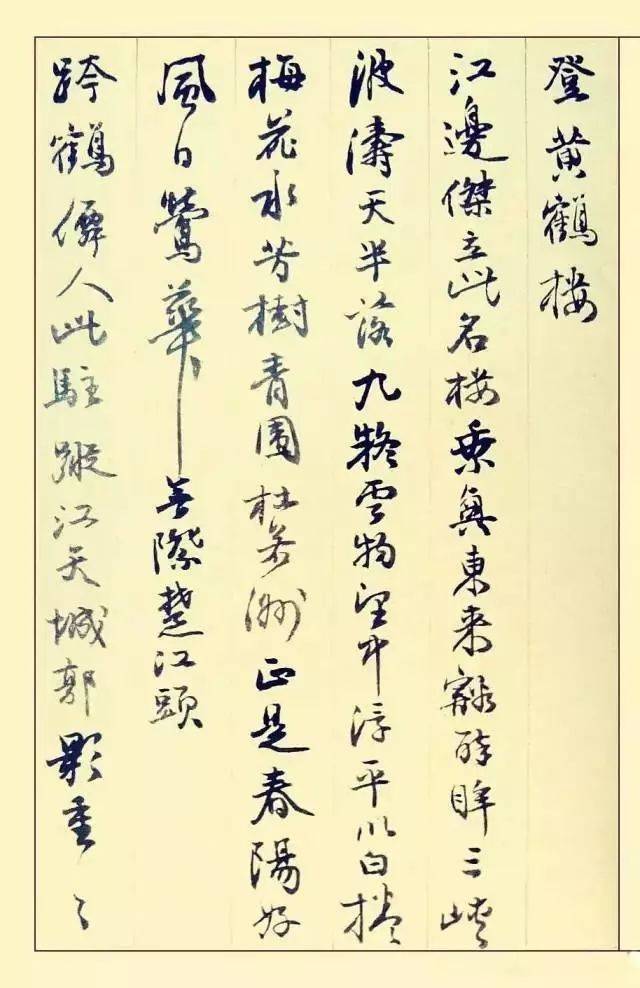 登黄鶴楼
江邊傑立此名楼乘興東来豁醉眸三峡
波濤天半落九疑雲物望中浮平川白捲
梅花水芳樹青圍杜若洲正是春陽好
風日鶯華無際楚江頭
跨鶴僊人此駐蹤江天城郭影重々